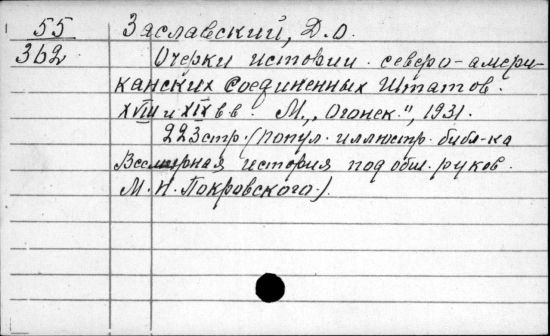 55 Заславский, Д.О.
362 Очерки истории северо-амери-
канских Соединенных Штатов.
XVIII и XIX в в. М., „Огонек", 1931.
223 стр. (попул. иллюстр. библ-ка
Всемирная история под общ. руков.
М.Н. Покровского.)